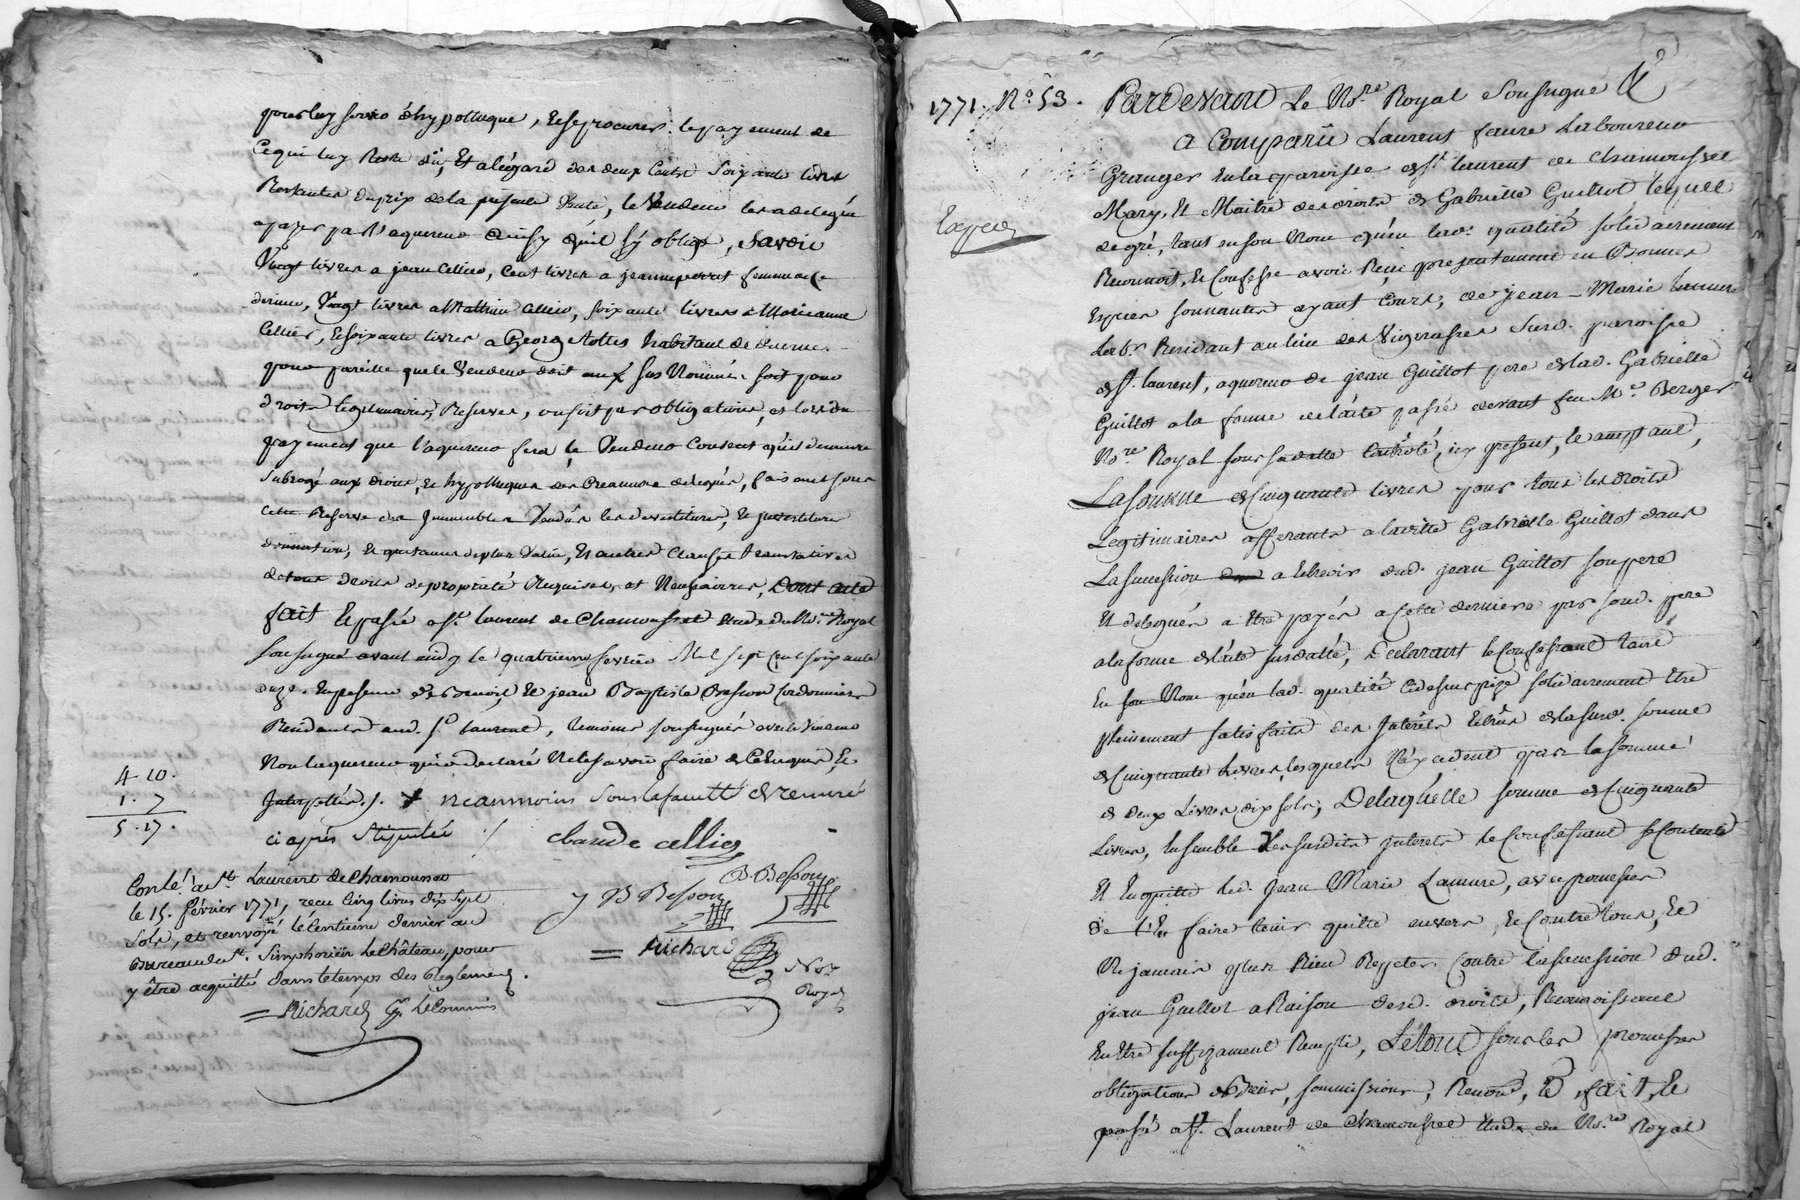 pour luy servir d'hypotheque, et se procurer le payement de
ce qui luy Reste dû, Et a l'égard des deux Cents Soixante livres
Restantes du prix de la presente Vente, le Vendeur les a delegué
a payer par l'aquereur Ainsy qu'il s'y oblige, Savoir
Vingt livres a jean Cellier, Cent livres a jeanne perret femme de
Vingt livres a Mathieu Cellier, soixante livres a Marianne
Cellier, et soixante livres a George habitant de
pour pareille que le Vendeur doit aux sus Nommé, soit pour
droits legitimaires, Reserves, ou soit par obligations, et lors du
payement que l'aquereur fera le Vendeur Consent qu'il demeure
Subrogé aux droits, et hypotheques des Creanciers delegués, faisant sous
cette Reserve des Immeubles Vendus les devestitures, et investitures
donnation, et quittance de plus Value, Et autres Clauses translatives
de tous droits de proprieté Requises, et Necessaires, Dont acte
fait et passé a St. Laurent de Chamousset Etude du No.re Royal
Soussigné avant midy le quatrieme fevrier Mil sept Cent soixante
onze. En presence de Benoit, Et jean Baptiste Besson Cordonniers
Residants aud. St. Laurent, temoins soussignés avec le Vendeur
Non l'aquereur qui a declaré Ne le savoir faire de Ce Enquis, Et
Interpellés ./. + neanmoins sous la faculté de remeré
ci après stipulée ./.
4 - 10.
1 . 7
5 . 17 .
claude cellier
B Besson
J B Besson
Richard
No.re
Royal
Conlé. a St. Laurent de Chamousset
le 15. février 1771, reçu Cinq livres dix sept
sols, et renvoyé le Centieme denier au
Bureau de St. Simphorien le Château, pour
y être acquitté dans le temps des Reglemens.
Richard
1771. No. 53.
Expédié
Pardevant Le No.re Royal Soussigné
a Comparu Laurent faure Laboureur
Granger En la paroisse de St. laurent de Chamousset
Mary, Et Maitre des droits de Gabrielle Guillot lequel
de gré, tant en son Nom qu'en lad. qualité solidairement
Reconnoit, et Confesse avoir Reçu presentement en bonnes
Especes sonnantes ayant Cours, de jean-Marie Lamure
Lab.r Residant au lieu des Vignasses Sud. paroisse
de St. laurent, aquereur de jean Guillot pere de lad. Gabrielle
Guillot a la forme de l'acte passé devant feu M.e Berger
No.re Royal sous sa datte Controlé, icy present, et acceptant,
La somme de Cinquante livres pour tous les droits
Legitimaires afferants a laditte Gabrielle Guillot dans
La succession a Echeoir dud. jean Guillot son pere
Et delegués a Etre payés a Cette derniere par sond. pere
a la forme de l'acte susdatté, Declarant le Confessant tant
En son Nom qu'en lad. qualité Cy dessus prise solidairement Etre
pleinement satisfait des Interets Echus de la susd. somme
de Cinquante Livres, lesquels N'excedent pas la somme
de deux Livres dix sols, De laquelle somme de Cinquante
Livres, Ensemble des susdits Interets le Confessant se Contente
Et En quitte led. Jean Marie Lamure, avec promesse
de l'En faire tenir quitte envers, et Contre tous, Et
N'jamais plus Rien Repeter Contre la succession dud.
jean Guillot a Raison desd. droits, Reconnoissant
En Etre suffizament Rempli, Le tout sous les promesses
obligations de biens, soumissions, Renon, Et fait, Et
passé a St. Laurent de Chamousset Etude du No.re Royal